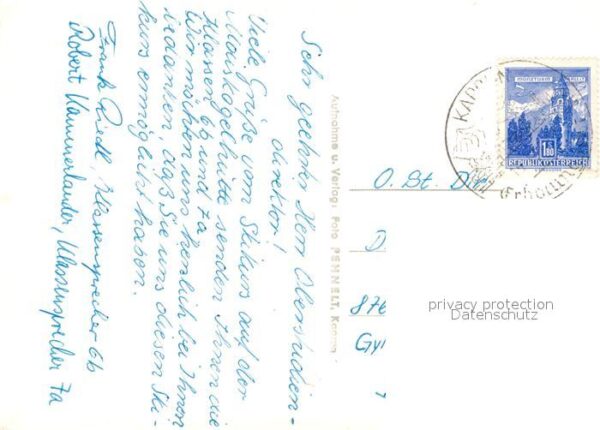 Sehr geehrter Herr Oberstudien-
direktor!
Viele Grüße vom Skikurs auf der
Maiskogelhütte senden Ihnen die
Klassen 6b und 7a
Wir möchten uns herzlich bei Ihnen
bedanken, daß Sie uns diesen Ski-
kurs ermöglicht haben.
Frank Riedl, Klassensprecher 6b
Robert Kammerlander, Klassensprecher 7a
Aufnahme u. Verlag: Foto PENNELT, 
KAPRU
1.80
REPUBLIK ÖSTERREICH
O. St. Dir
D
876
Gy
privacy protection
Datenschutz